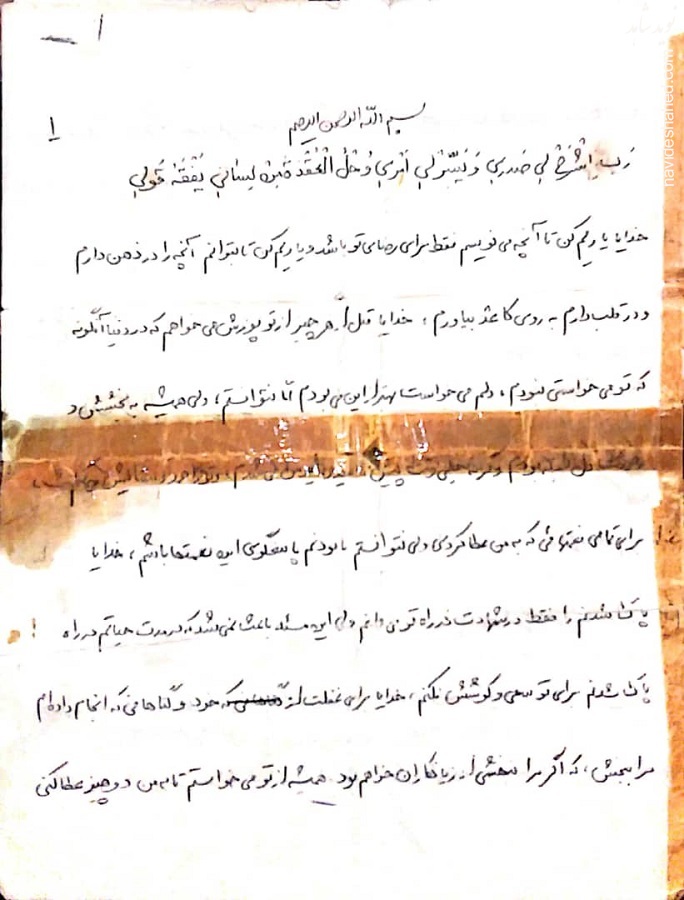 ۱
۱
بسم الله الرحمن الرحیم
رَبِّ اشْرَحْ لِي صَدري وَ يَسِّرْ لي أمْري وَ احْلُلْ الْعُقْدَة مِنْ لِساني يَفْقَهُ قَولي
خدایا یاریم کن تا آنچه می نویسم فقط برای رضای تو باشد و یاریم کن تا بتوانم آنچه را در ذهن دارم
و در قلب دارم به روی کاغذ بیاورم، خدایا قبل از هر چیز از تو پوزش می خواهم که در دنیا آنگونه
که تو می خواستی نبودم، دلم می خواست بهتر از این می بودم اما نتوانستم، ولی همیشه به بخشش و
برای تمامی نعمتهائی که به من عطا کردی ولی نتوانستم با بودنم پاسگوی این نعمتها باشم، خدایا
پاک شدنم را فقط در شهادت در راه تو می دانم ولی این مسئله باعث نمی شد که در مدت حیاتم در راه
پاک شدنم برای تو سعی و کوشش نکنم، خدایا برای غفلت از خود و گناهانی که انجام داده‌ام
مرا ببخش، که اگر مرا نبخشی از زیانکاران خواهم بود. همیشه از تو می خواستم تا به من دو چیز عطا کنی
navideshahed.com